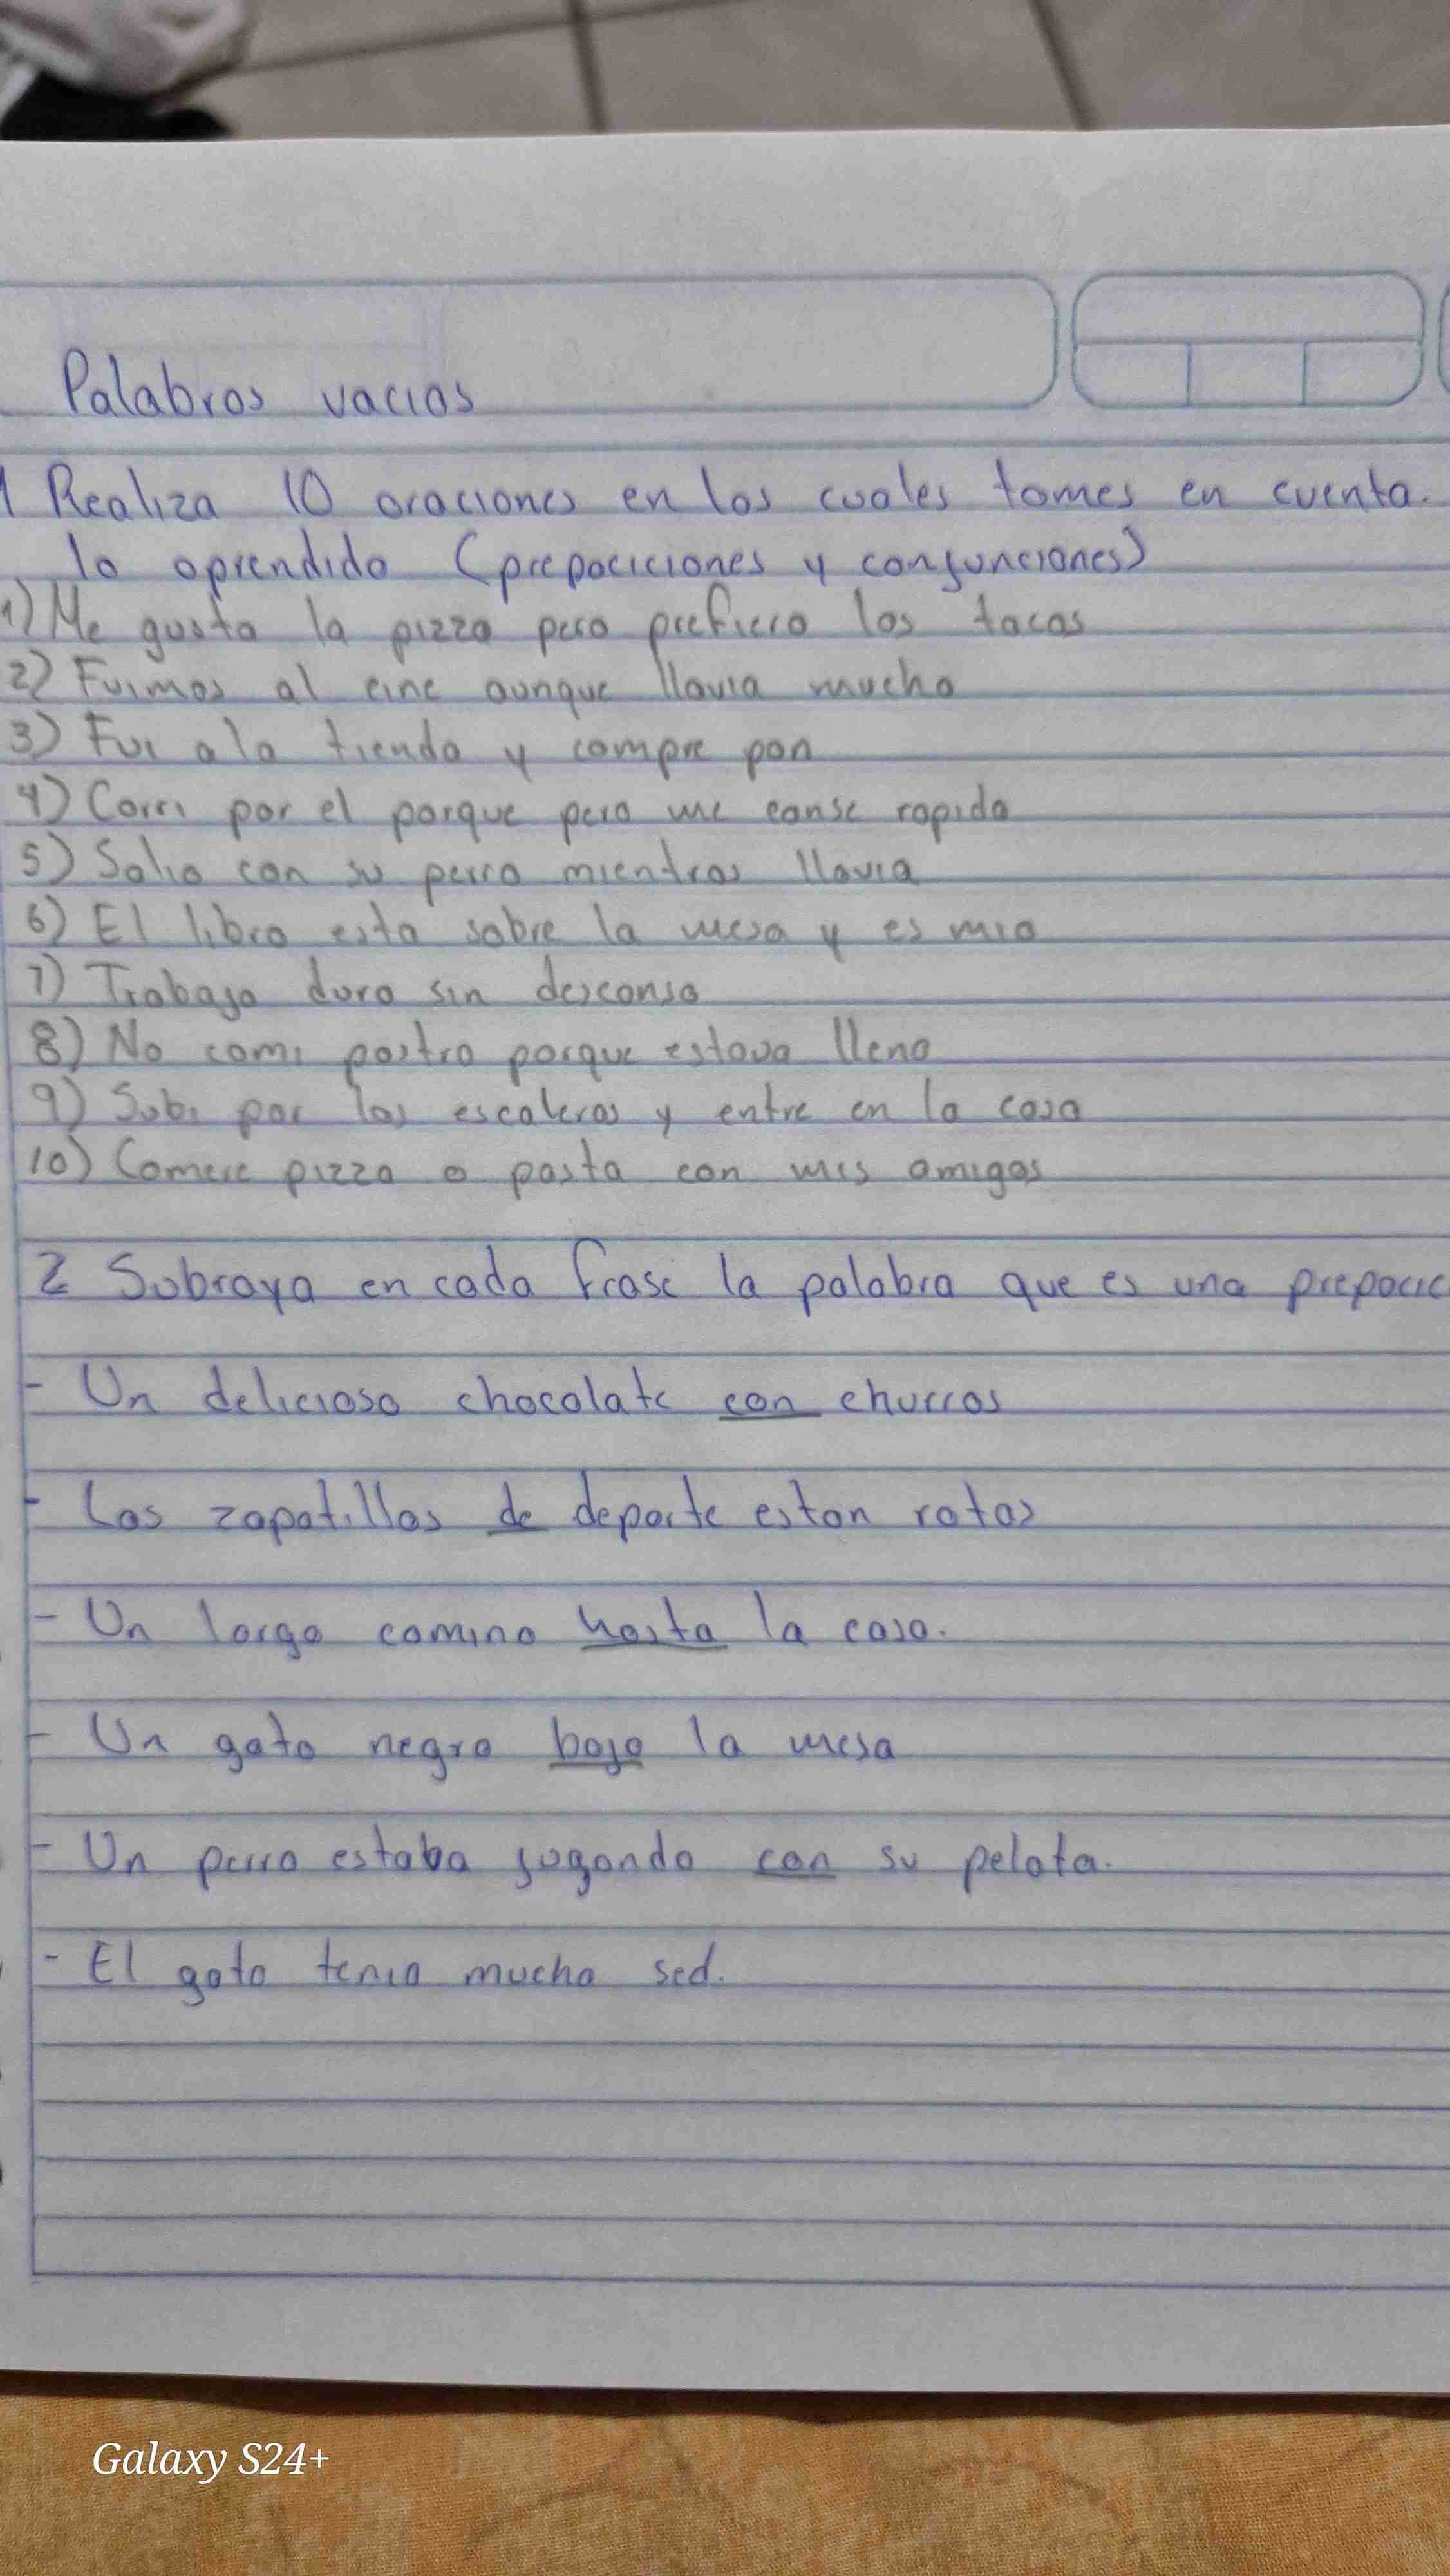 Palabras vacias
1 Realiza 10 oraciones en las cuales tomes en cuenta.
lo aprendido (prepociciones y conjunciones)
1) Me gusta la pizza pero prefiero los tacos
2) Fuimos al cine aunque llavia mucho
3) Fui a la tienda y compre pan
4) Corri por el parque pero me canse rapido
5) Salio con su perro mientras llovia
6) El libro esta sobre la mesa y es mio
7) Trabajo duro sin descanso
8) No comi postro porque estava lleno
9) Subi por las escaleras y entre en la casa
10) Comere pizza o pasta con mis amigos
2 Subraya en cada frase la palabra que es una prepocic
- Un delicioso chocolate con churros
- Las zapatillas de deporte estan rotas
- Un largo camino hasta la casa.
- Un gato negro bajo la mesa
- Un perro estaba jugando con su pelota.
- El gato tenia mucha sed.
Galaxy S24+